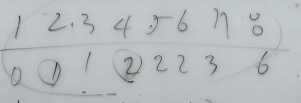 1 2.3 4 5 6 7 8
0 1 1 2 2 2 3 6